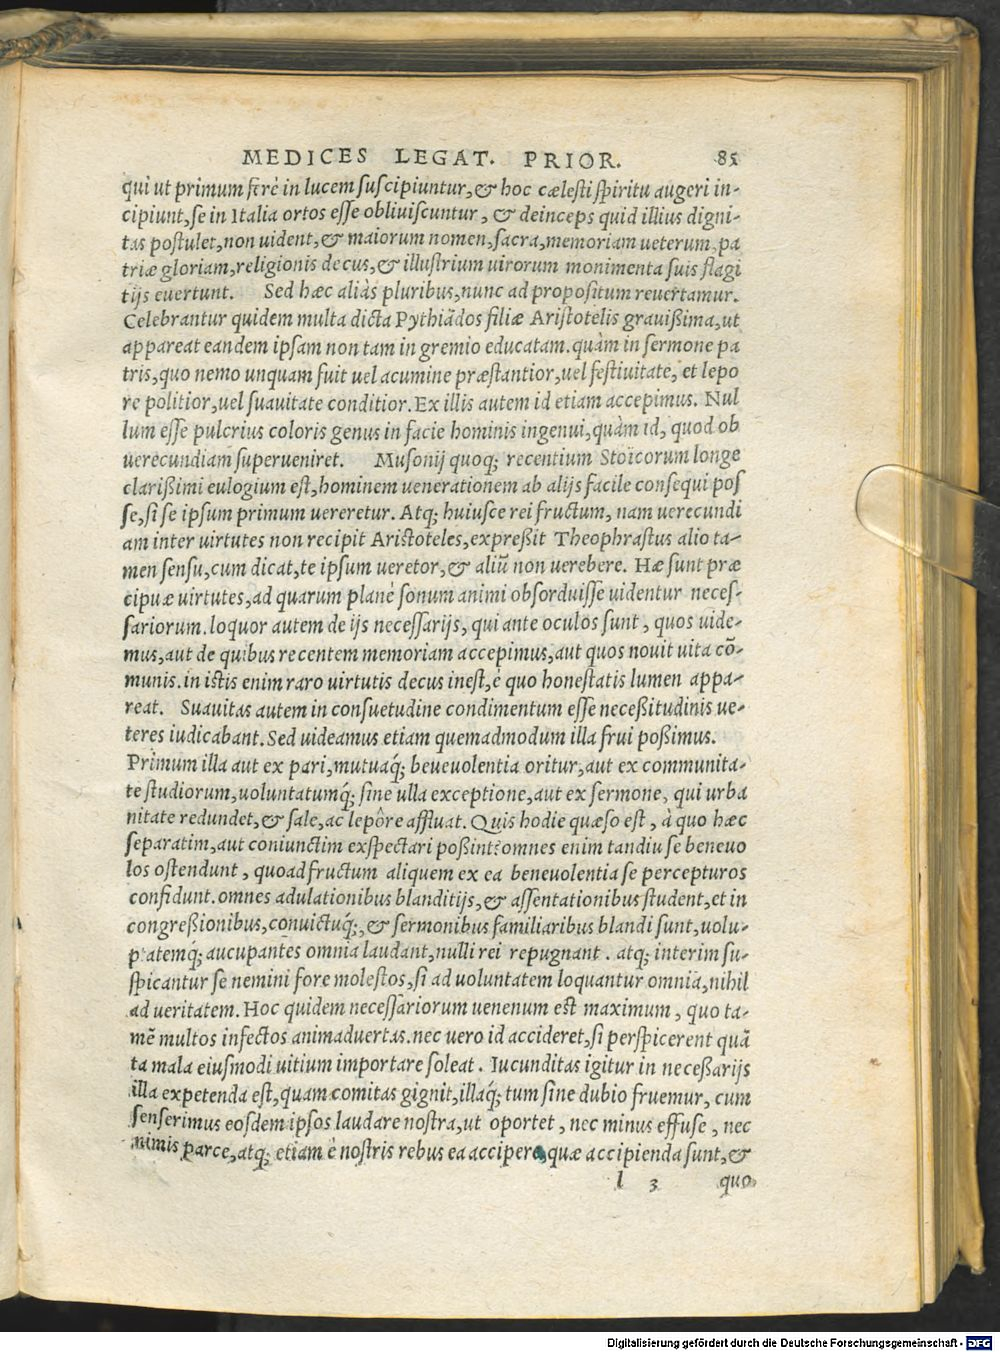 MEDICES LEGAT. PRIOR. 85
qui ut primum ferè in lucem suscipiuntur,& hoc cælesti spiritu augeri in-
cipiunt,se in Italia ortos esse obliuiscuntur, & deinceps quid illius digni-
tas postulet,non uident,& maiorum nomen,sacra,memoriam ueterum,pa
triæ gloriam,religionis decus,& illustrium uirorum monimenta suis flagi
tijs euertunt. Sed hæc aliàs pluribus,nunc ad propositum reuertamur.
Celebrantur quidem multa dicta Pythiãdos filiæ Aristotelis grauißima,ut
appareat eandem ipsam non tam in gremio educatam.quàm in sermone pa
tris,quo nemo unquam fuit uel acumine præstantior,uel festiuitate, et lepo
re politior,uel suauitate conditior.Ex illis autem id etiam accepimus. Nul
lum esse pulcrius coloris genus in facie hominis ingenui,quàm id, quod ob
uerecundiam superueniret. Musonij quoq; recentium Stoicorum longe
clarißimi eulogium est,hominem uenerationem ab alijs facile consequi pos
se,si se ipsum primum uereretur. Atq; huiusce rei fructum, nam uerecundi
am inter uirtutes non recipit Aristoteles,expreßit Theophrastus alio ta-
men sensu,cum dicat,te ipsum ueretor,& aliũ non uerebere. Hæ sunt præ
cipuæ uirtutes,ad quarum planè sonum animi obsorduisse uidentur neces-
sariorum.loquor autem de ijs necessarijs, qui ante oculos sunt, quos uide-
mus,aut de quibus recentem memoriam accepimus,aut quos nouit uita cõ-
munis.in istis enim raro uirtutis decus inest,è quo honestatis lumen appa-
reat. Suauitas autem in consuetudine condimentum esse neceßitudinis ue-
teres iudicabant.Sed uideamus etiam quemadmodum illa frui poßimus.
Primum illa aut ex pari,mutuaq́; beueuolentia oritur,aut ex communita-
te studiorum,uoluntatumq́; sine ulla exceptione,aut ex sermone, qui urba
nitate redundet,& sale,ac lepôre affluat. Quis hodie quæso est, à quo hæc
separatim,aut coniunctim exspectari poßint?omnes enim tandiu se beneuo
los ostendunt, quoad fructum aliquem ex ea beneuolentia se percepturos
confidunt.omnes adulationibus blanditijs,& assentationibus student,et in
congreßionibus,conuictuq́;,& sermonibus familiaribus blandi sunt,uolu-
ptatemq́; aucupantes omnia laudant,nulli rei repugnant. atq; interim su-
spicantur se nemini fore molestos,si ad uoluntatem loquantur omnia,nihil
ad ueritatem. Hoc quidem necessariorum uenenum est maximum, quo ta-
mẽ multos infectos animaduertas.nec uero id accideret,si perspicerent quã
ta mala eiusmodi uitium importare soleat. Iucunditas igitur in neceßarijs
illa expetenda est,quam comitas gignit,illaq́; tum sine dubio fruemur, cum
senserimus eosdem ipsos laudare nostra,ut oportet, nec minus effuse, nec
nimis parce,atq; etiam è nostris rebus ea accipere,quæ accipienda sunt,&
l 3 quo
Digitalisierung gefördert durch die Deutsche Forschungsgemeinschaft - DFG